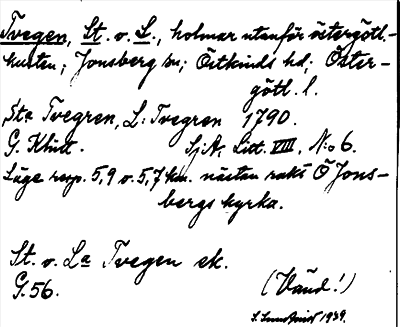 Tvegen, St. o. L., holmar utanför östergötl.-
kusten; Jonsberg sn; Östkinds hd; Öster-
götl. l.
Sta Tvegren, L: Tvegren 1790.
G. Klint. SjA, Lit. VIII, N:o 6.
Läge resp. 5,9 o. 5,7 km. nästan rakt Ö Jons-
bergs kyrka.
St. o. La Tvegen ek.
G. 56. (Vänd!)
1939.